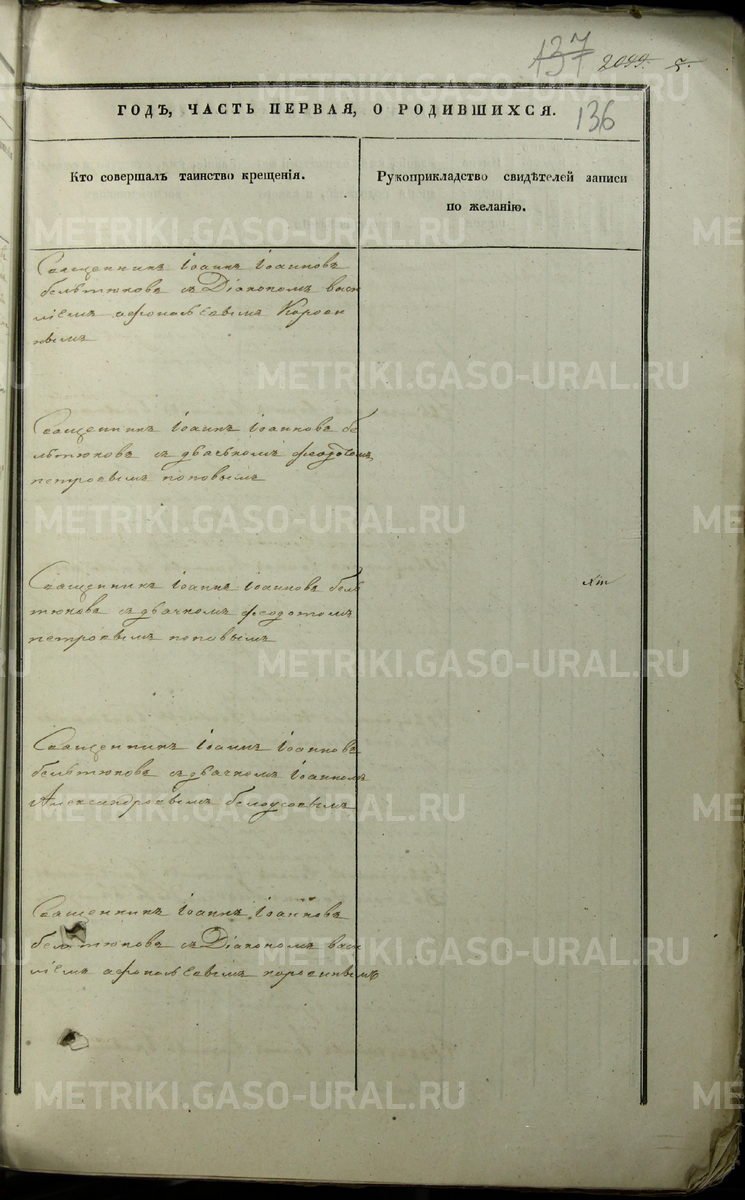 137
2099
136
ГОДЪ, ЧАСТЬ ПЕРВАЯ, О РОДИВШИХСЯ.
Кто совершалъ таинство крещенія.
Рукоприкладство свидѣтелей записи
по желанію.
Священникъ Іоаннъ Іоанновъ
бельтюковъ съ Діакономъ васи
ліемъ афонасьевымъ Коровн
нымъ
Священникъ Іоаннъ Іоанновъ бе
льтюковъ съ дьячкомъ феодотомъ
петровымъ поповымъ
Священникъ Іоаннъ Іоанновъ бель
тюковъ съ дьячкомъ феодотомъ
петровымъ поповымъ
Священникъ Іоаннъ Іоанновъ
бельтюковъ съ дьячкомъ Іоанномъ
Александровымъ белоусовымъ
Священникъ Іоаннъ Іоанновъ
бельтюковъ съ Діакономъ васи
ліемъ афонасьевымъ
METRIKI.GASO-URAL.RU